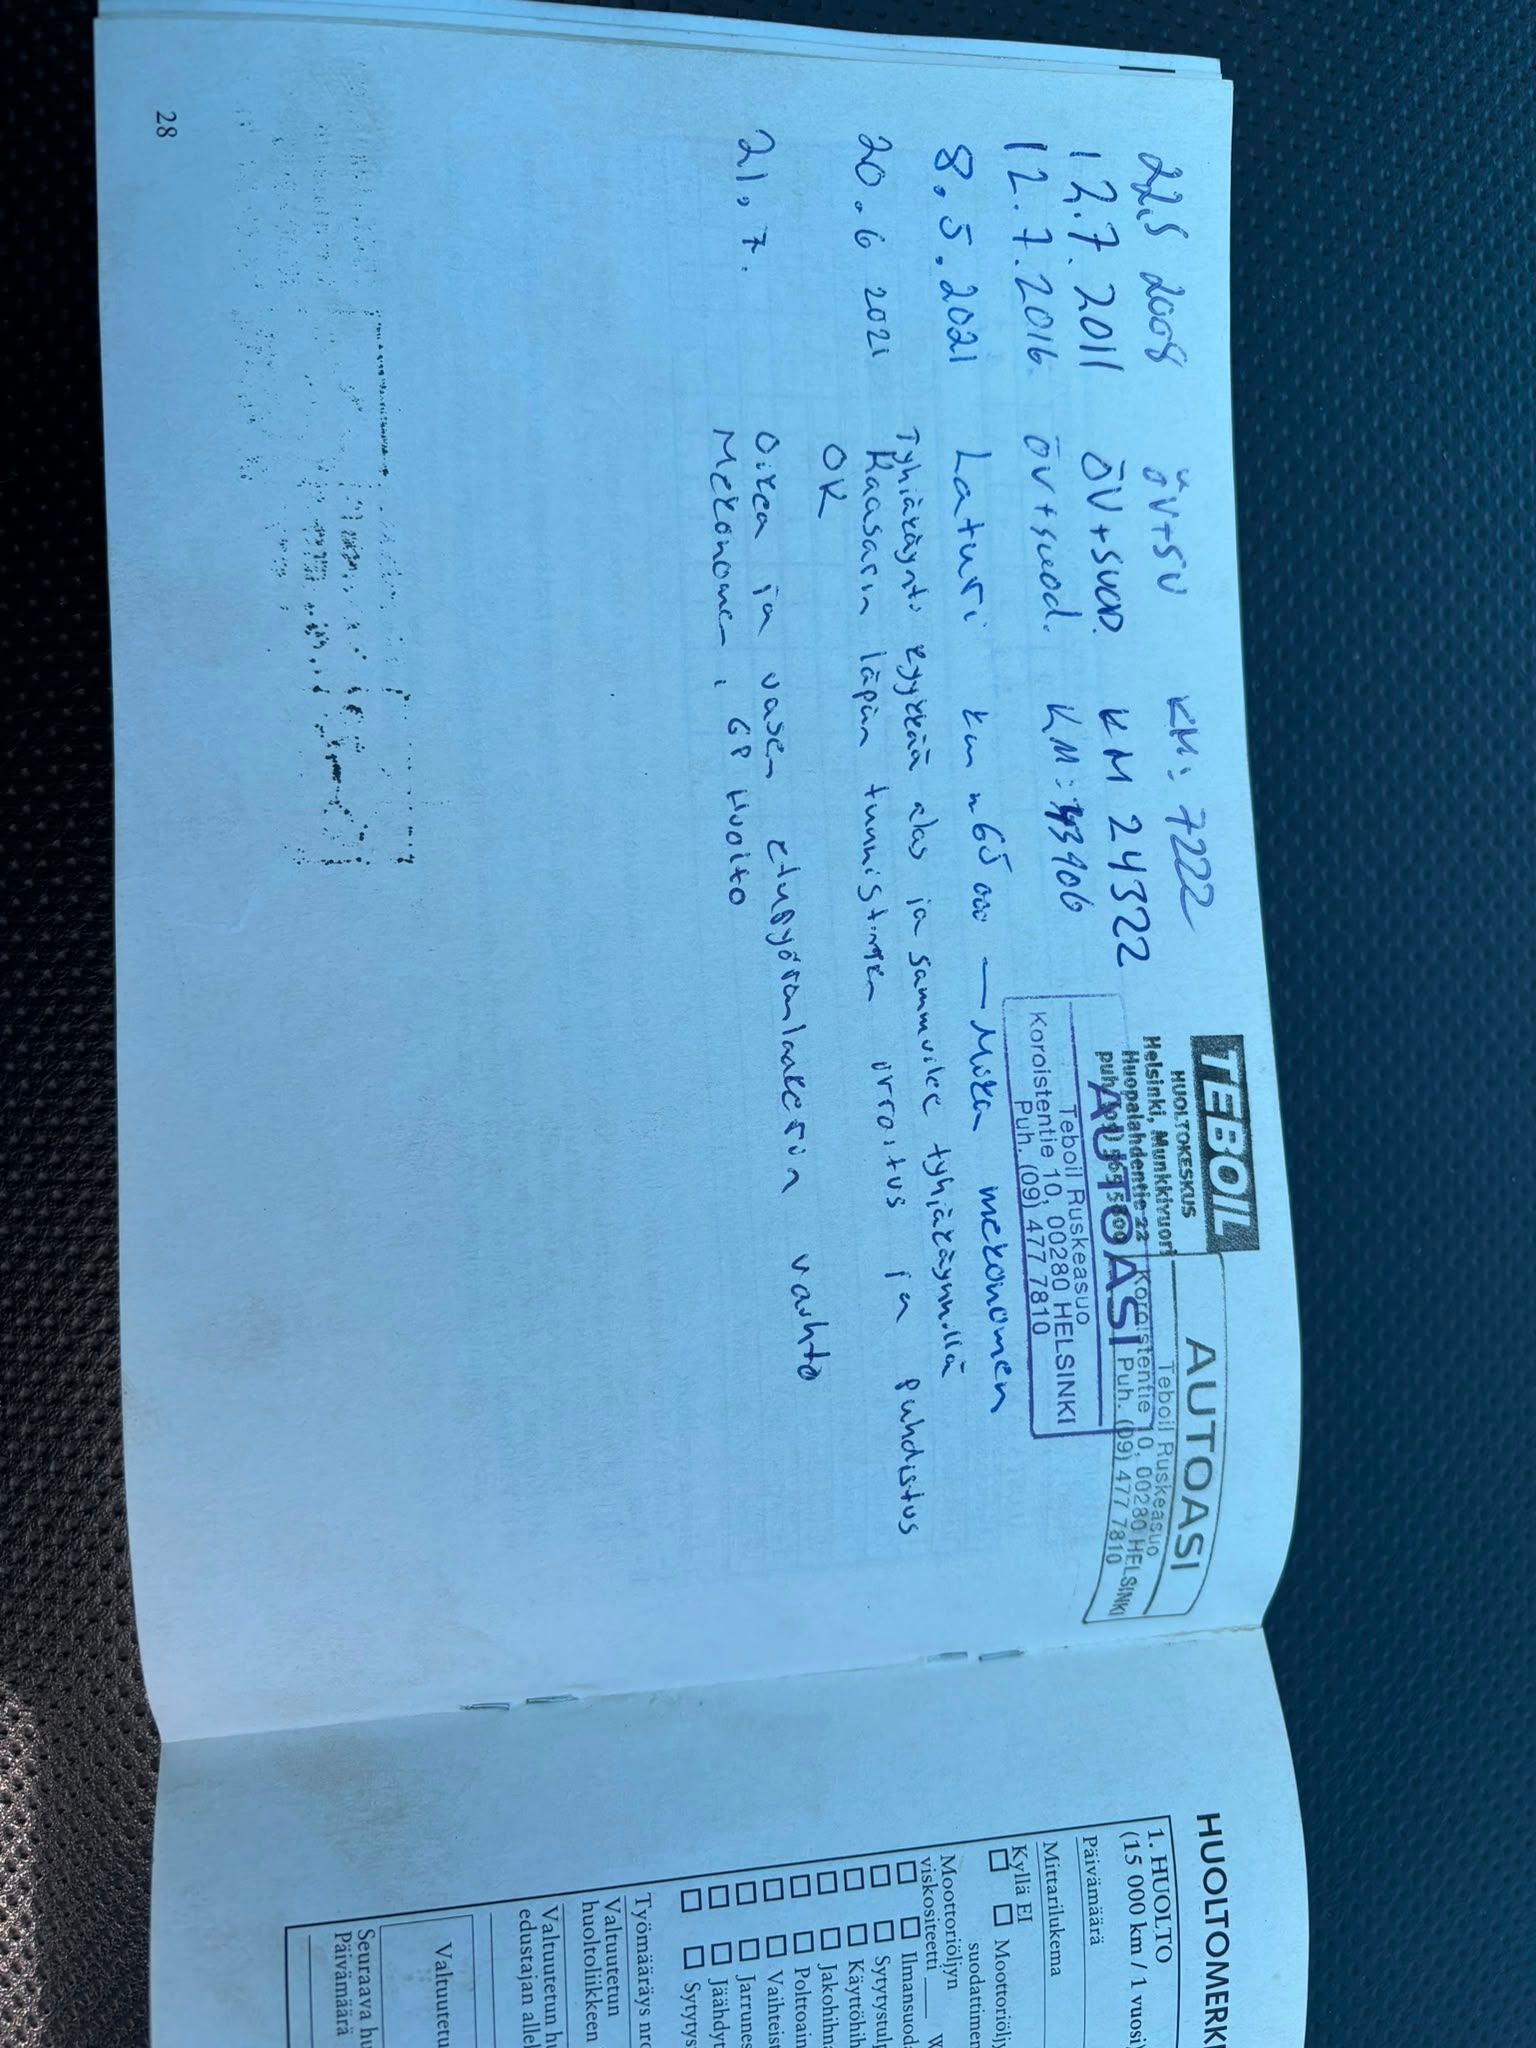 22.5 2008 ÖV+SU KM: 7222
12.7. 2011 ÖV+SUOD. KM 24322
12.7.2016. ÖV+suod. KM: 43906
8.5.2021 Laturi km n 65 000 — Mika mekonomen
Tyhjäkäynti kyykkää alas ja sammuilee tyhjäkäynnillä
20.6 2021 Kaasarin läpän tunnistimen irroitus ja puhdistus
OK
21.7. Oikea ja vasen etupyöränlaakerin vaihto
Mekonomen, GP Huolto
TEBOIL
HUOLTOKESKUS
Helsinki, Munkkivuori
Huopalahdentie 22
AUTOASI
Teboil Ruskeasuo
Koroistentie 10, 00280 HELSINKI
Puh. (09) 477 7810
AUTOASI
Teboil Ruskeasuo
Koroistentie 10, 00280 HELSINKI
Puh. (09) 477 7810
28
HUOLTOMERKI
1. HUOLTO
(15 000 km / 1 vuosi)
Päivämäärä
Mittarilukema
Kyllä EI
Moottoriöljy
suodattimen
Moottoriöljyn
viskositeetti W
Ilmansuoda
Sytytystulp
Käyttöhih
Jakohihna
Polttoain
Vaihteist
Jarrunes
Jäähdyt
Sytytys
Työmääräys nro
Valtuutetun
huoltoliikkeen
Valtuutetun hu
edustajan allek
Valtuutetu
Seuraava hu
Päivämäärä